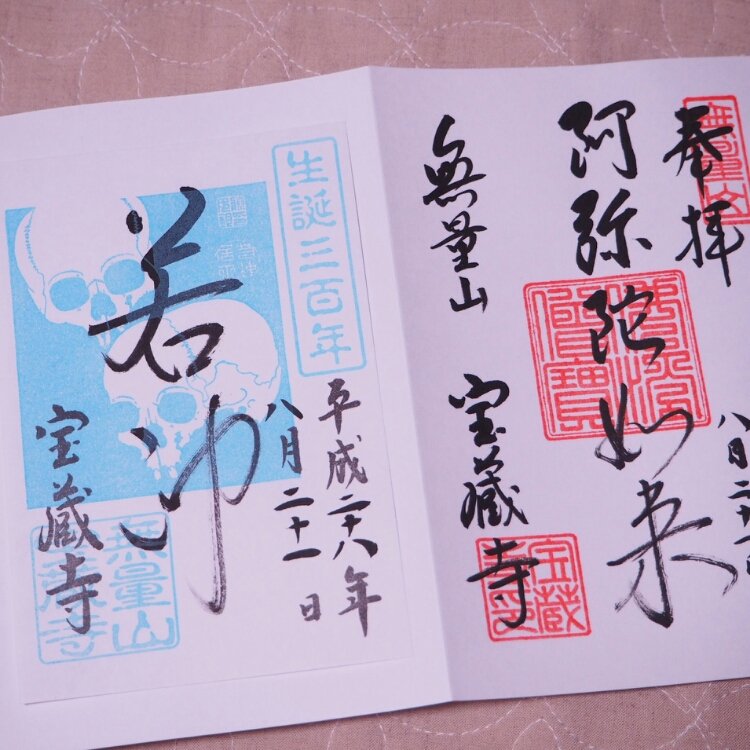 奉拝
無量山
阿弥陀如来
無量山
宝蔵寺
宝蔵
生誕三百年
若冲
平成二十八年
八月二十一日
宝蔵寺
無量山